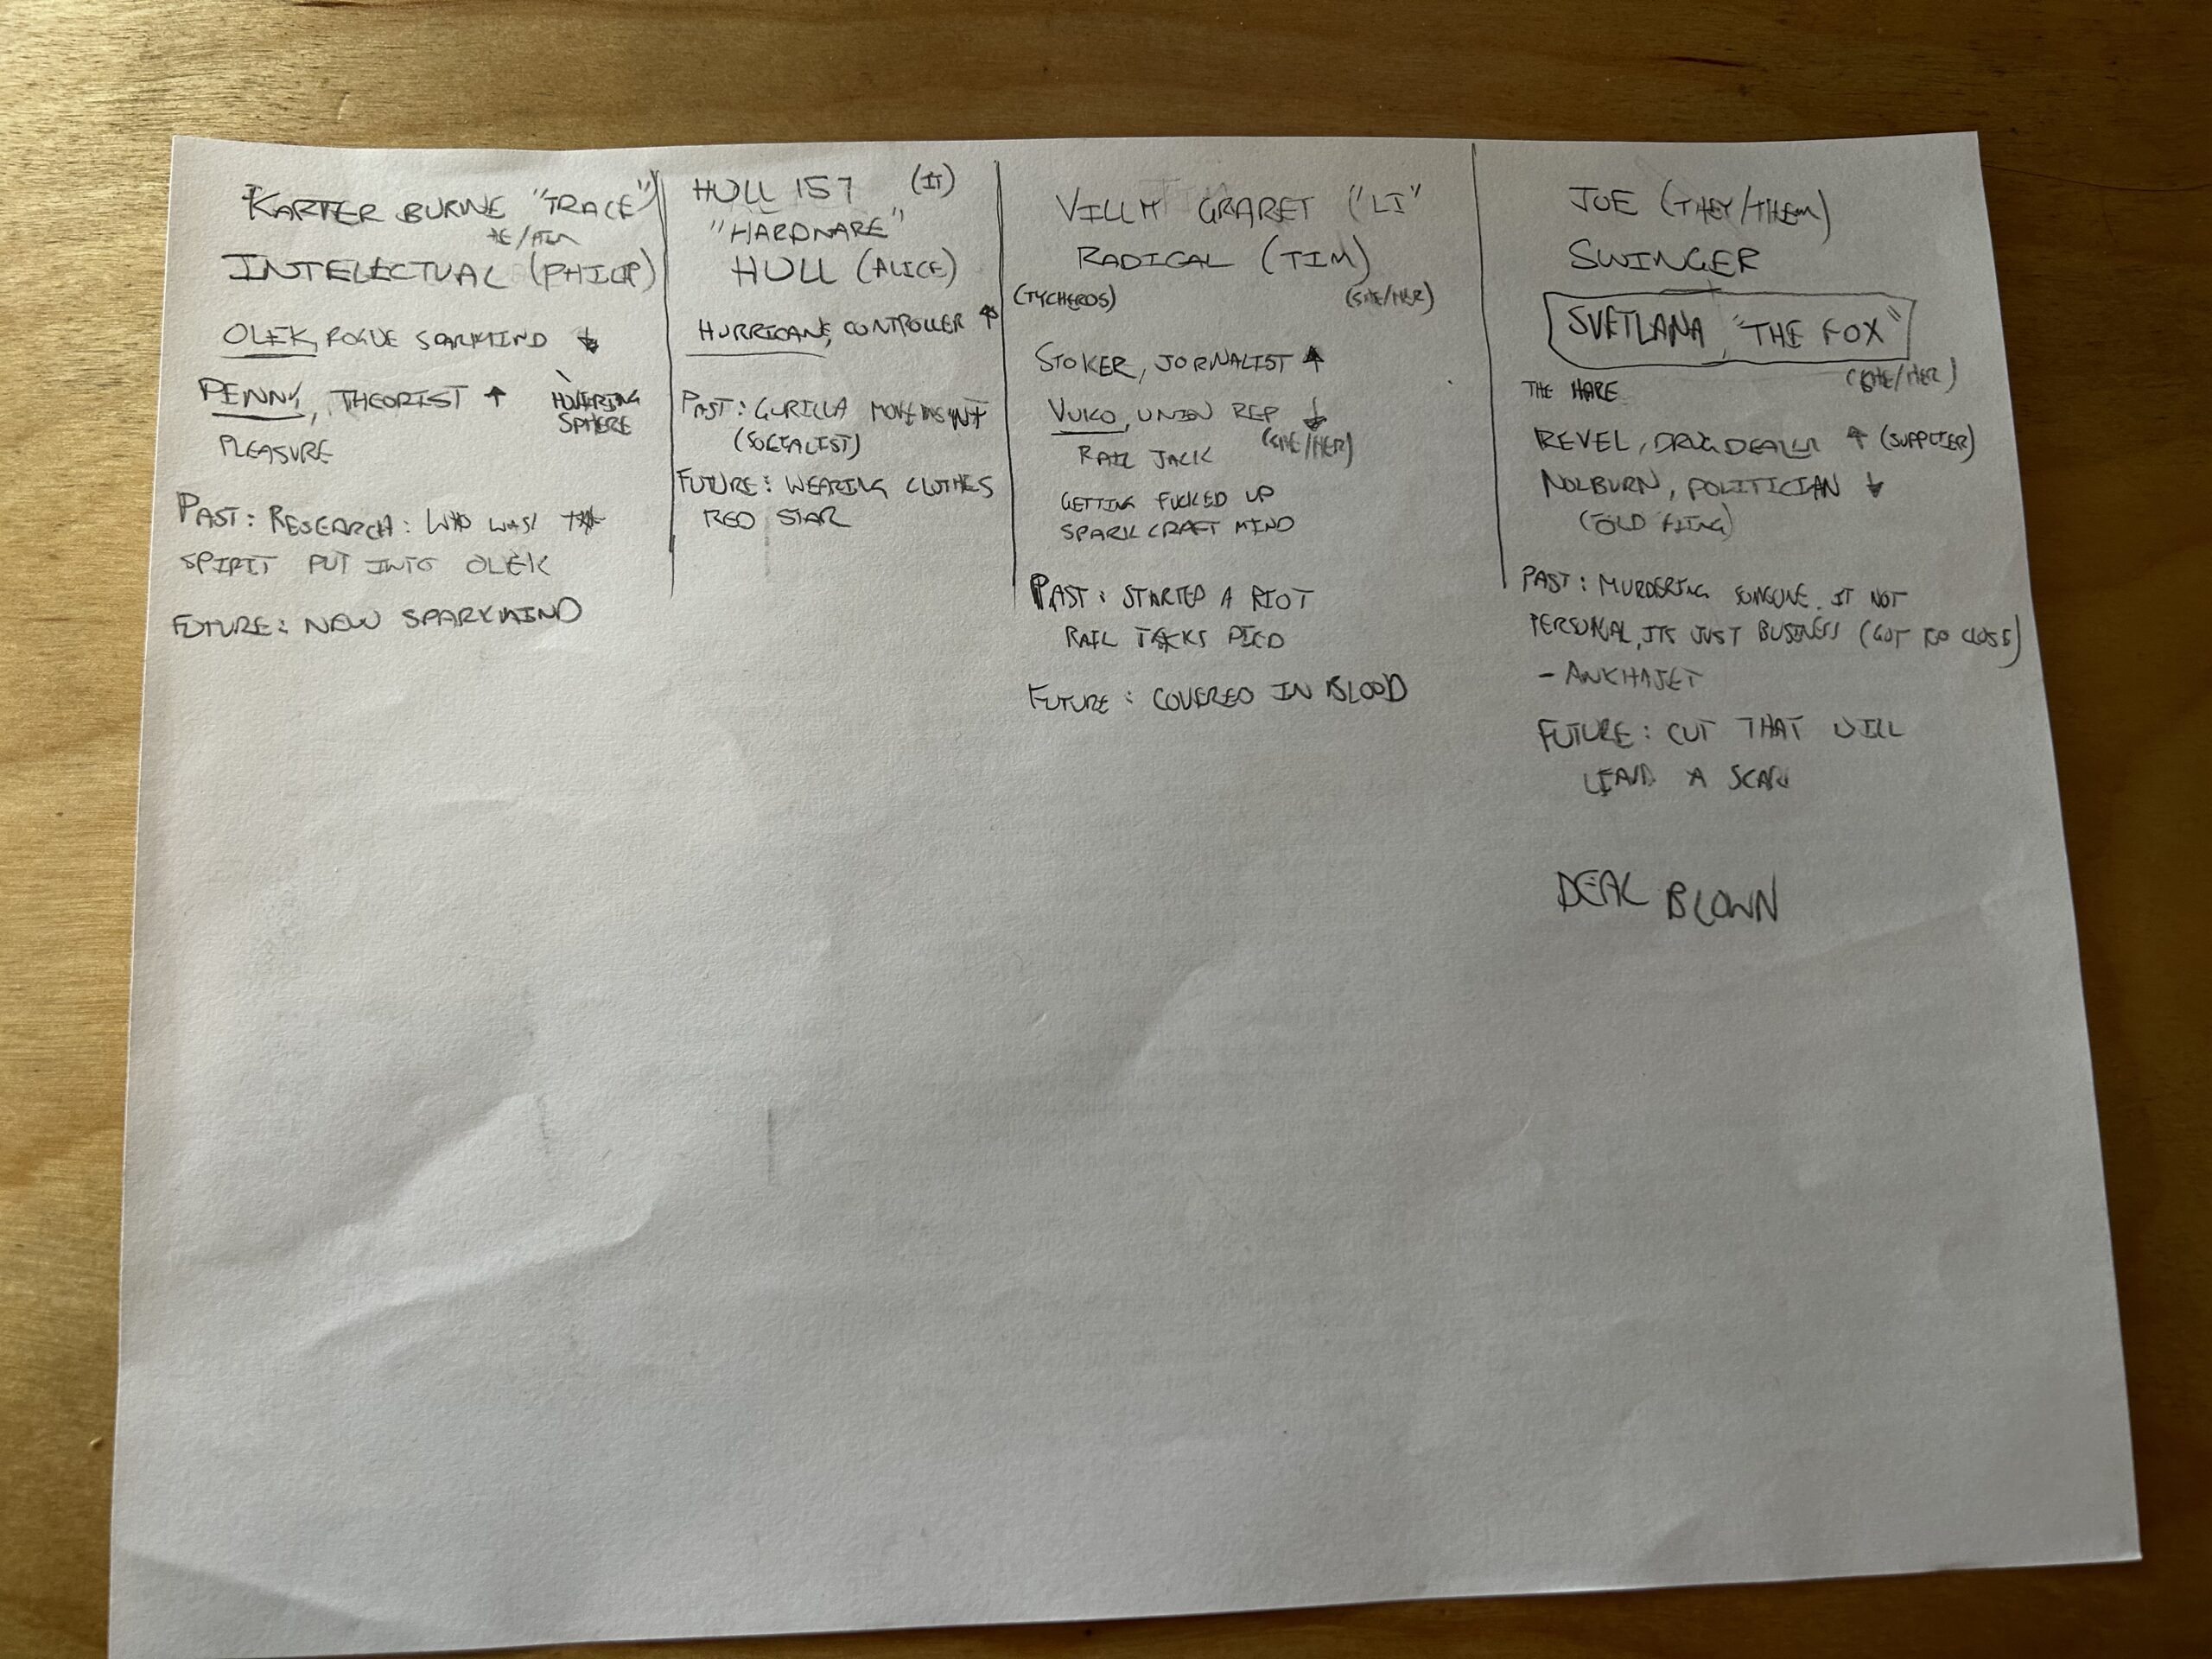 KARTER BURNE "TRACE"
HE/HIM
INTELECTUAL (PHILIP)
OLEK, ROGUE SPARKMIND ↓
PENNY, THEORIST ↑
HOVERING
SPHERE
PLEASURE
PAST: RESEARCH: WHO WAS THE
SPIRIT PUT INTO OLEK
FUTURE: NEW SPARKMIND
HULL 157 (IT)
"HARDWARE"
HULL (ALICE)
HURRICANE, CONTROLLER ↑
PAST: GURILLA MOVEMENT
(SOCIALIST)
FUTURE: WEARING CLOTHES
RED STAR
VILLM GRARET ("LI"
RADICAL (TIM)
(TYCHEROS) (SHE/HER)
STOKER, JORNALIST ↑
VUKO, UNION REP ↓
(SHE/HER)
RAIL JACK
GETTING FUCKED UP
SPARK CRAFT MIND
PAST: STARTED A RIOT
RAIL JACKS DIED
FUTURE: COVERED IN BLOOD
JOE (THEY/THEM)
SWINGER
SVETLANA, "THE FOX"
(SHE/HER)
THE HARE
REVEL, DRUG DEALER ↑ (SUPPLIER)
NOLBURN, POLITICIAN ↓
(OLD FLING)
PAST: MURDERING SOMEONE. IT NOT
PERSONAL, ITS JUST BUSINESS (GOT TO CLOSE)
- ANKHAJET
FUTURE: CUT THAT WILL
LEAVE A SCAR
DEAL BLOWN